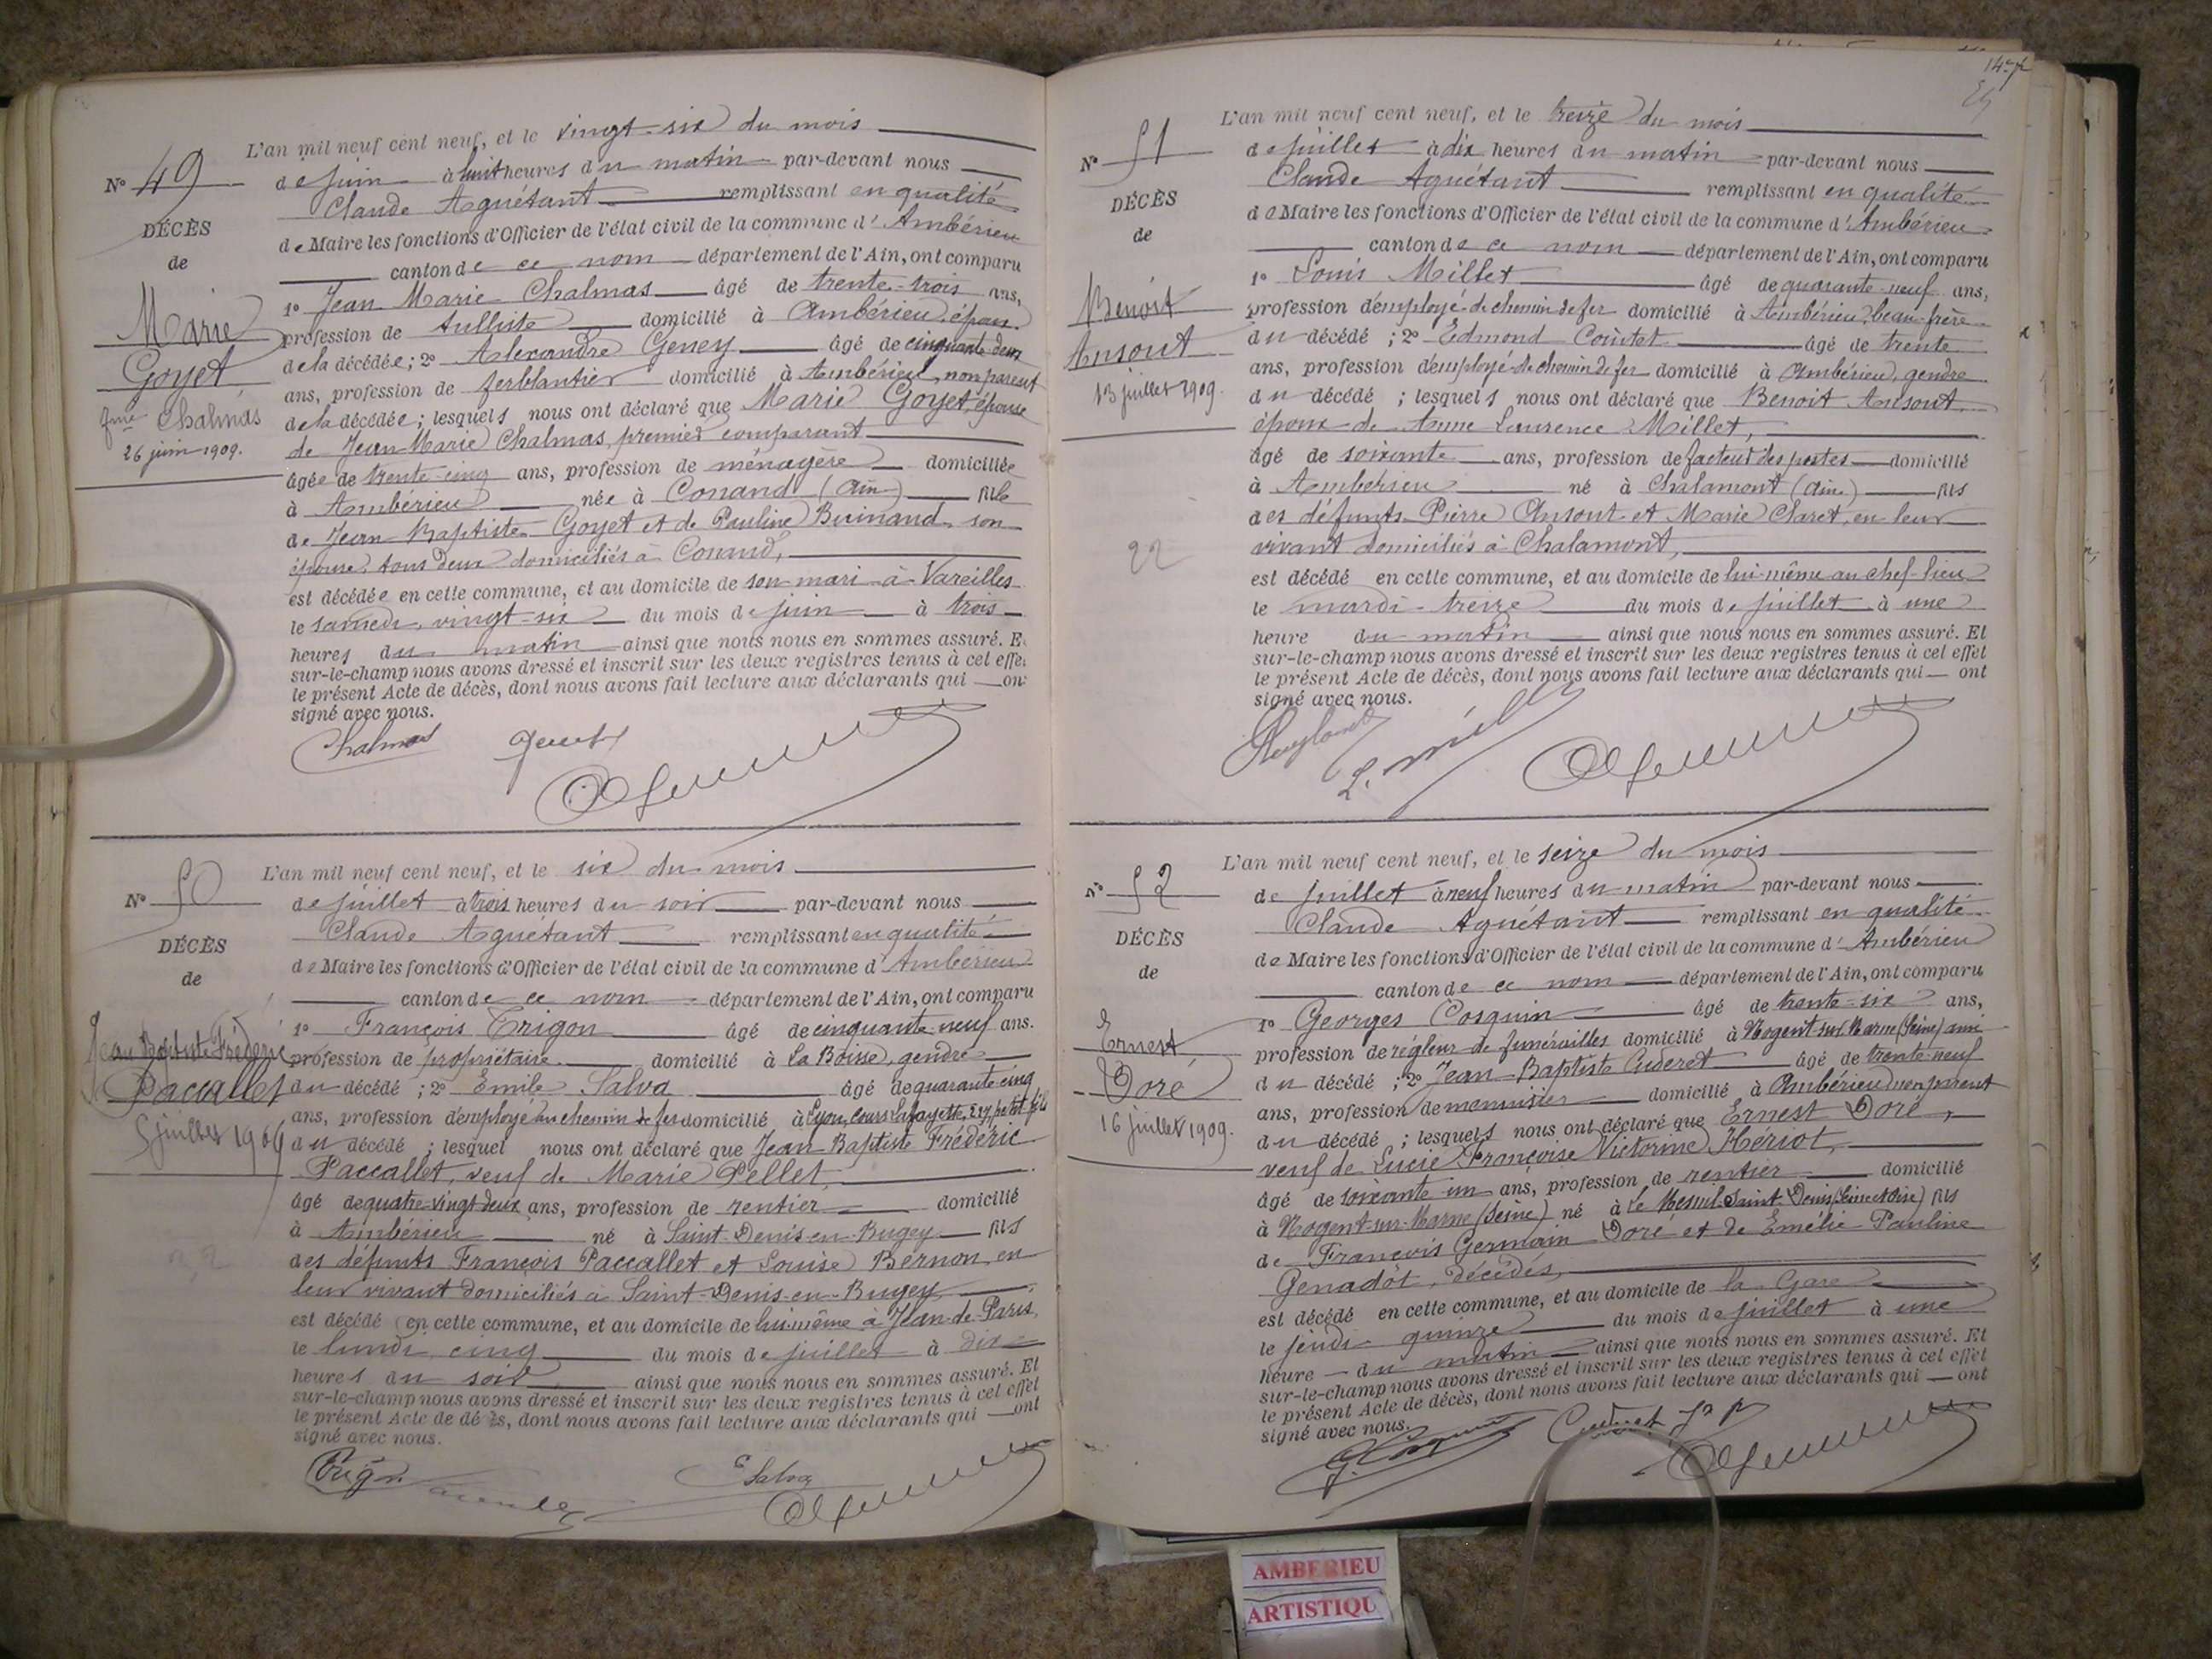 L'an mil neuf cent neuf, et le vingt-six du mois
N° 49
de juin à huit heures du matin par-devant nous
Claude Aguétant remplissant en qualité
DÉCÈS
de Maire les fonctions d'Officier de l'état civil de la commune d'Ambérieu
de
canton de ce nom département de l'Ain, ont comparu
1° Jean Marie Chalmas âgé de trente-trois ans,
Marie
profession de tulliste domicilié à Ambérieu, époux
Goyet
de la décédée; 2° Alexandre Geney âgé de cinquante deux
ans, profession de ferblantier domicilié à Ambérieu, non parent
fme Chalmas
de la décédée; lesquels nous ont déclaré que Marie Goyet, épouse
26 juin 1909.
de Jean Marie Chalmas, premier comparant
âgée de trente-cinq ans, profession de ménagère domiciliée
à Ambérieu née à Conand (Ain) fille
de Jean Baptiste Goyet et de Pauline Buinand, son
épouse, tous deux domiciliés à Conand,
est décédée en cette commune, et au domicile de son mari à Vareilles
le samedi, vingt-six du mois de juin à trois
heures du matin ainsi que nous nous en sommes assuré. E
sur-le-champ nous avons dressé et inscrit sur les deux registres tenus à cel effe
le présent Acte de décès, dont nous avons fait lecture aux déclarants qui on
signé avec nous.
Chalmas
L'an mil neuf cent neuf, et le six du mois
N° 50
de juillet à trois heures du soir par-devant nous
Claude Aguétant remplissant en qualité
DÉCÈS
de Maire les fonctions d'Officier de l'état civil de la commune d'Ambérieu
de
canton de ce nom département de l'Ain, ont comparu
1° François Trigon âgé de cinquante neuf ans.
Jean Baptiste Frédéric
profession de propriétaire domicilié à La Boisse, gendre
Paccallet
du décédé; 2° Emile Salva âgé de quarante cinq
ans, profession d'employé au chemin de fer domicilié à Lyon, cours Lafayette, 227, petit-fils
5 juillet 1909
du décédé; lesquel nous ont déclaré que Jean Baptiste Frédéric
Paccallet, veuf de Marie Pellet,
âgé de quatre-vingt deux ans, profession de rentier domicilié
à Ambérieu né à Saint-Denis-en-Bugey fils
des défunts François Paccallet et Louise Bernon, en
leur vivant domiciliés à Saint-Denis-en-Bugey
est décédé en cette commune, et au domicile de lui-même à Jean-de-Paris,
le lundi, cinq du mois de juillet à dix
heures du soir ainsi que nous nous en sommes assuré. Et
sur-le-champ nous avons dressé et inscrit sur les deux registres tenus à cel effet
le présent Acte de décès, dont nous avons fait lecture aux déclarants qui ont
signé avec nous.
E Salva
L'an mil neuf cent neuf, et le treize du mois
N° 51
de juillet à dix heures du matin par-devant nous
Claude Aguétant remplissant en qualité
DÉCÈS
de Maire les fonctions d'Officier de l'état civil de la commune d'Ambérieu
de
canton de ce nom département de l'Ain, ont comparu
1° Louis Millet âgé de quarante-neuf ans,
Benoît
profession d'employé de chemin de fer domicilié à Ambérieu, beau-frère
Ansout
du décédé; 2° Edmond âgé de trente
13 juillet 1909.
ans, profession d'employé de chemin de fer domicilié à Ambérieu, gendre
du décédé; lesquels nous ont déclaré que Benoit Ansout,
époux de Anne Laurence Millet,
âgé de soixante ans, profession de facteur des postes domicilié
à Ambérieu né à Chalamont (Ain) fils
des défunts Pierre Ansout et Marie Claret, en leur
22
vivant domiciliés à Chalamont,
est décédé en cette commune, et au domicile de lui-même au chef-lieu
le mardi treize du mois de juillet à une
heure du matin ainsi que nous nous en sommes assuré. Et
sur-le-champ nous avons dressé et inscrit sur les deux registres tenus à cel effet
le présent Acte de décès, dont nous avons fait lecture aux déclarants qui ont
signé avec nous.
L'an mil neuf cent neuf, et le seize du mois
N° 52
de juillet à neuf heures du matin par-devant nous
Claude Aguétant remplissant en qualité
DÉCÈS
de Maire les fonctions d'Officier de l'état civil de la commune d'Ambérieu
de
canton de ce nom département de l'Ain, ont comparu
1° Georges Cosquin âgé de trente-six ans,
Ernest
profession de régleur de funérailles domicilié à Nogent sur Marne (Seine) ami
Doré
du décédé; 2° Jean-Baptiste Cuderet âgé de trente-neuf
16 juillet 1909.
ans, profession de menuisier domicilié à Ambérieu, non parent
du décédé; lesquels nous ont déclaré que Ernest Doré,
veuf de Lucie Françoise Victorine Hériot,
âgé de soixante un ans, profession de rentier domicilié
à Nogent-sur-Marne (Seine) né à Le Mesnil-Saint-Denis (Seine et Oise) fils
de François Germain Doré et de Emélie Pauline
Genadot, décédés,
est décédé en cette commune, et au domicile de la Gare
le jeudi quinze du mois de juillet à une
heure du matin ainsi que nous nous en sommes assuré. Et
sur-le-champ nous avons dressé et inscrit sur les deux registres tenus à cel effet
le présent Acte de décès, dont nous avons fait lecture aux déclarants qui ont
signé avec nous.
AMBERIEU
ARTISTIQU